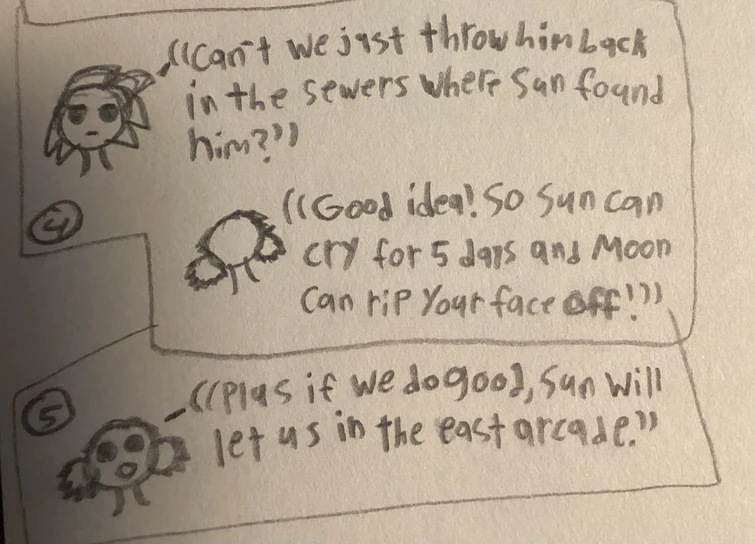 "Can't we just throw him back
in the sewers where Sun found
him?"
4
"Good idea! So Sun can
cry for 5 days and Moon
can rip your face off!"
5
"Plus if we do good, Sun will
let us in the east arcade."